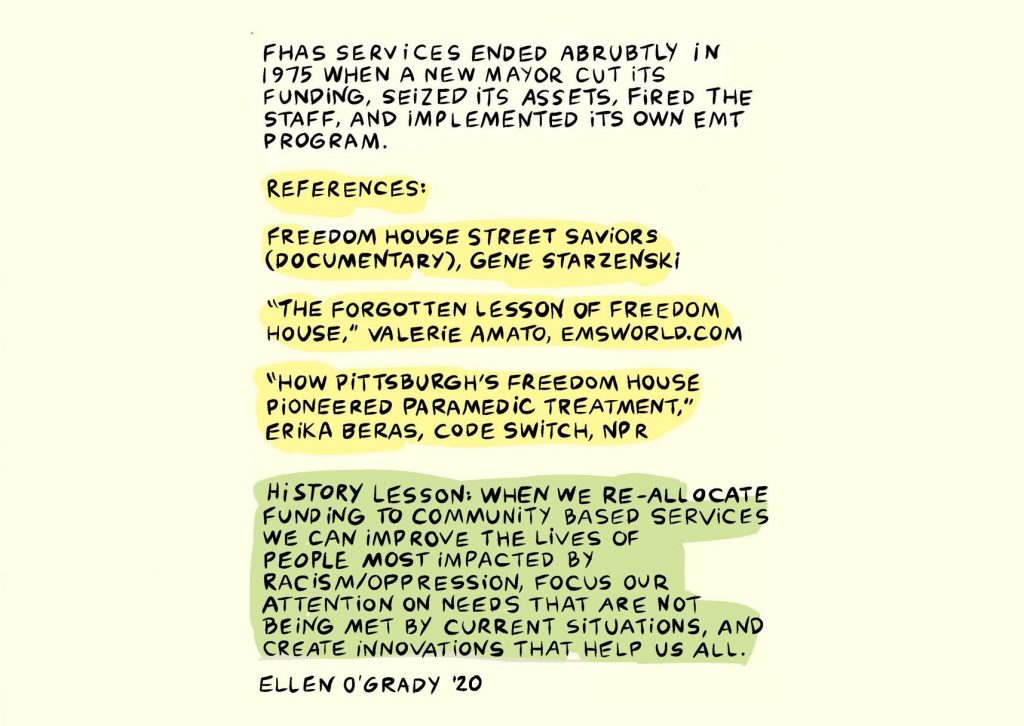 FHAS SERVICES ENDED ABRUBTLY IN
1975 WHEN A NEW MAYOR CUT ITS
FUNDING, SEIZED ITS ASSETS, FIRED THE
STAFF, AND IMPLEMENTED ITS OWN EMT
PROGRAM.
REFERENCES:
FREEDOM HOUSE STREET SAVIORS
(DOCUMENTARY), GENE STARZENSKI
"THE FORGOTTEN LESSON OF FREEDOM
HOUSE," VALERIE AMATO, EMSWORLD.COM
"HOW PITTSBURGH'S FREEDOM HOUSE
PIONEERED PARAMEDIC TREATMENT,"
ERIKA BERAS, CODE SWITCH, NPR
HISTORY LESSON: WHEN WE RE-ALLOCATE
FUNDING TO COMMUNITY BASED SERVICES
WE CAN IMPROVE THE LIVES OF
PEOPLE MOST IMPACTED BY
RACISM/OPPRESSION, FOCUS OUR
ATTENTION ON NEEDS THAT ARE NOT
BEING MET BY CURRENT SITUATIONS, AND
CREATE INNOVATIONS THAT HELP US ALL.
ELLEN O'GRADY '20